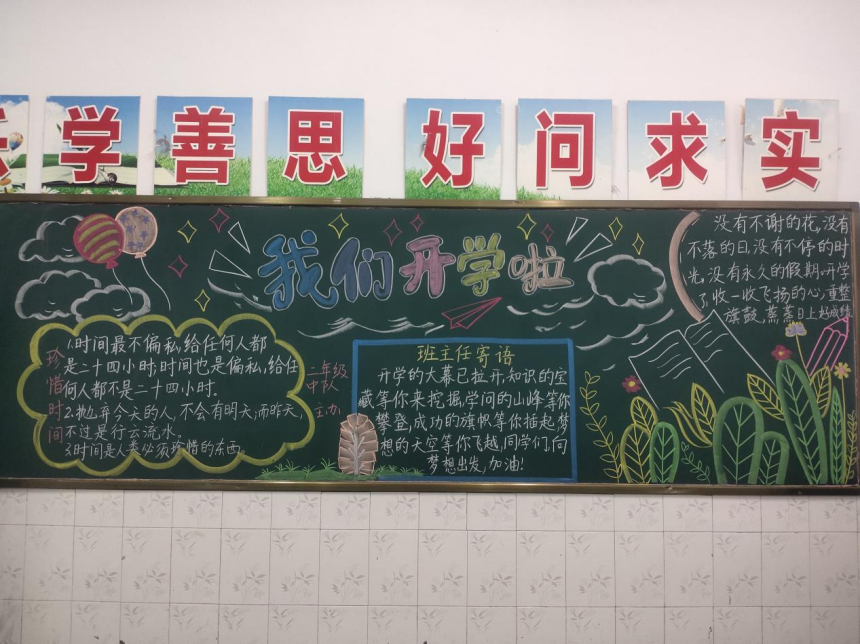 学善思 好问求实
我们开学啦
珍惜时间
1.时间最不偏私,给任何人都
是二十四小时;时间也是偏私,给任
何人都不是二十四小时。
2.抛弃今天的人,不会有明天;而昨天,
不过是行云流水。
3.时间是人类必须珍惜的东西。
二年级
中队
主办
班主任寄语
开学的大幕已拉开,知识的宝
藏等你来挖掘,学问的山峰等你
攀登,成功的旗帜等你插起,梦
想的天空等你飞越,同学们,向
梦想出发,加油!
没有不谢的花,没有
不落的日,没有不停的时
光,没有永久的假期。开学
了,收一收飞扬的心,重整
旗鼓,蒸蒸日上好成绩